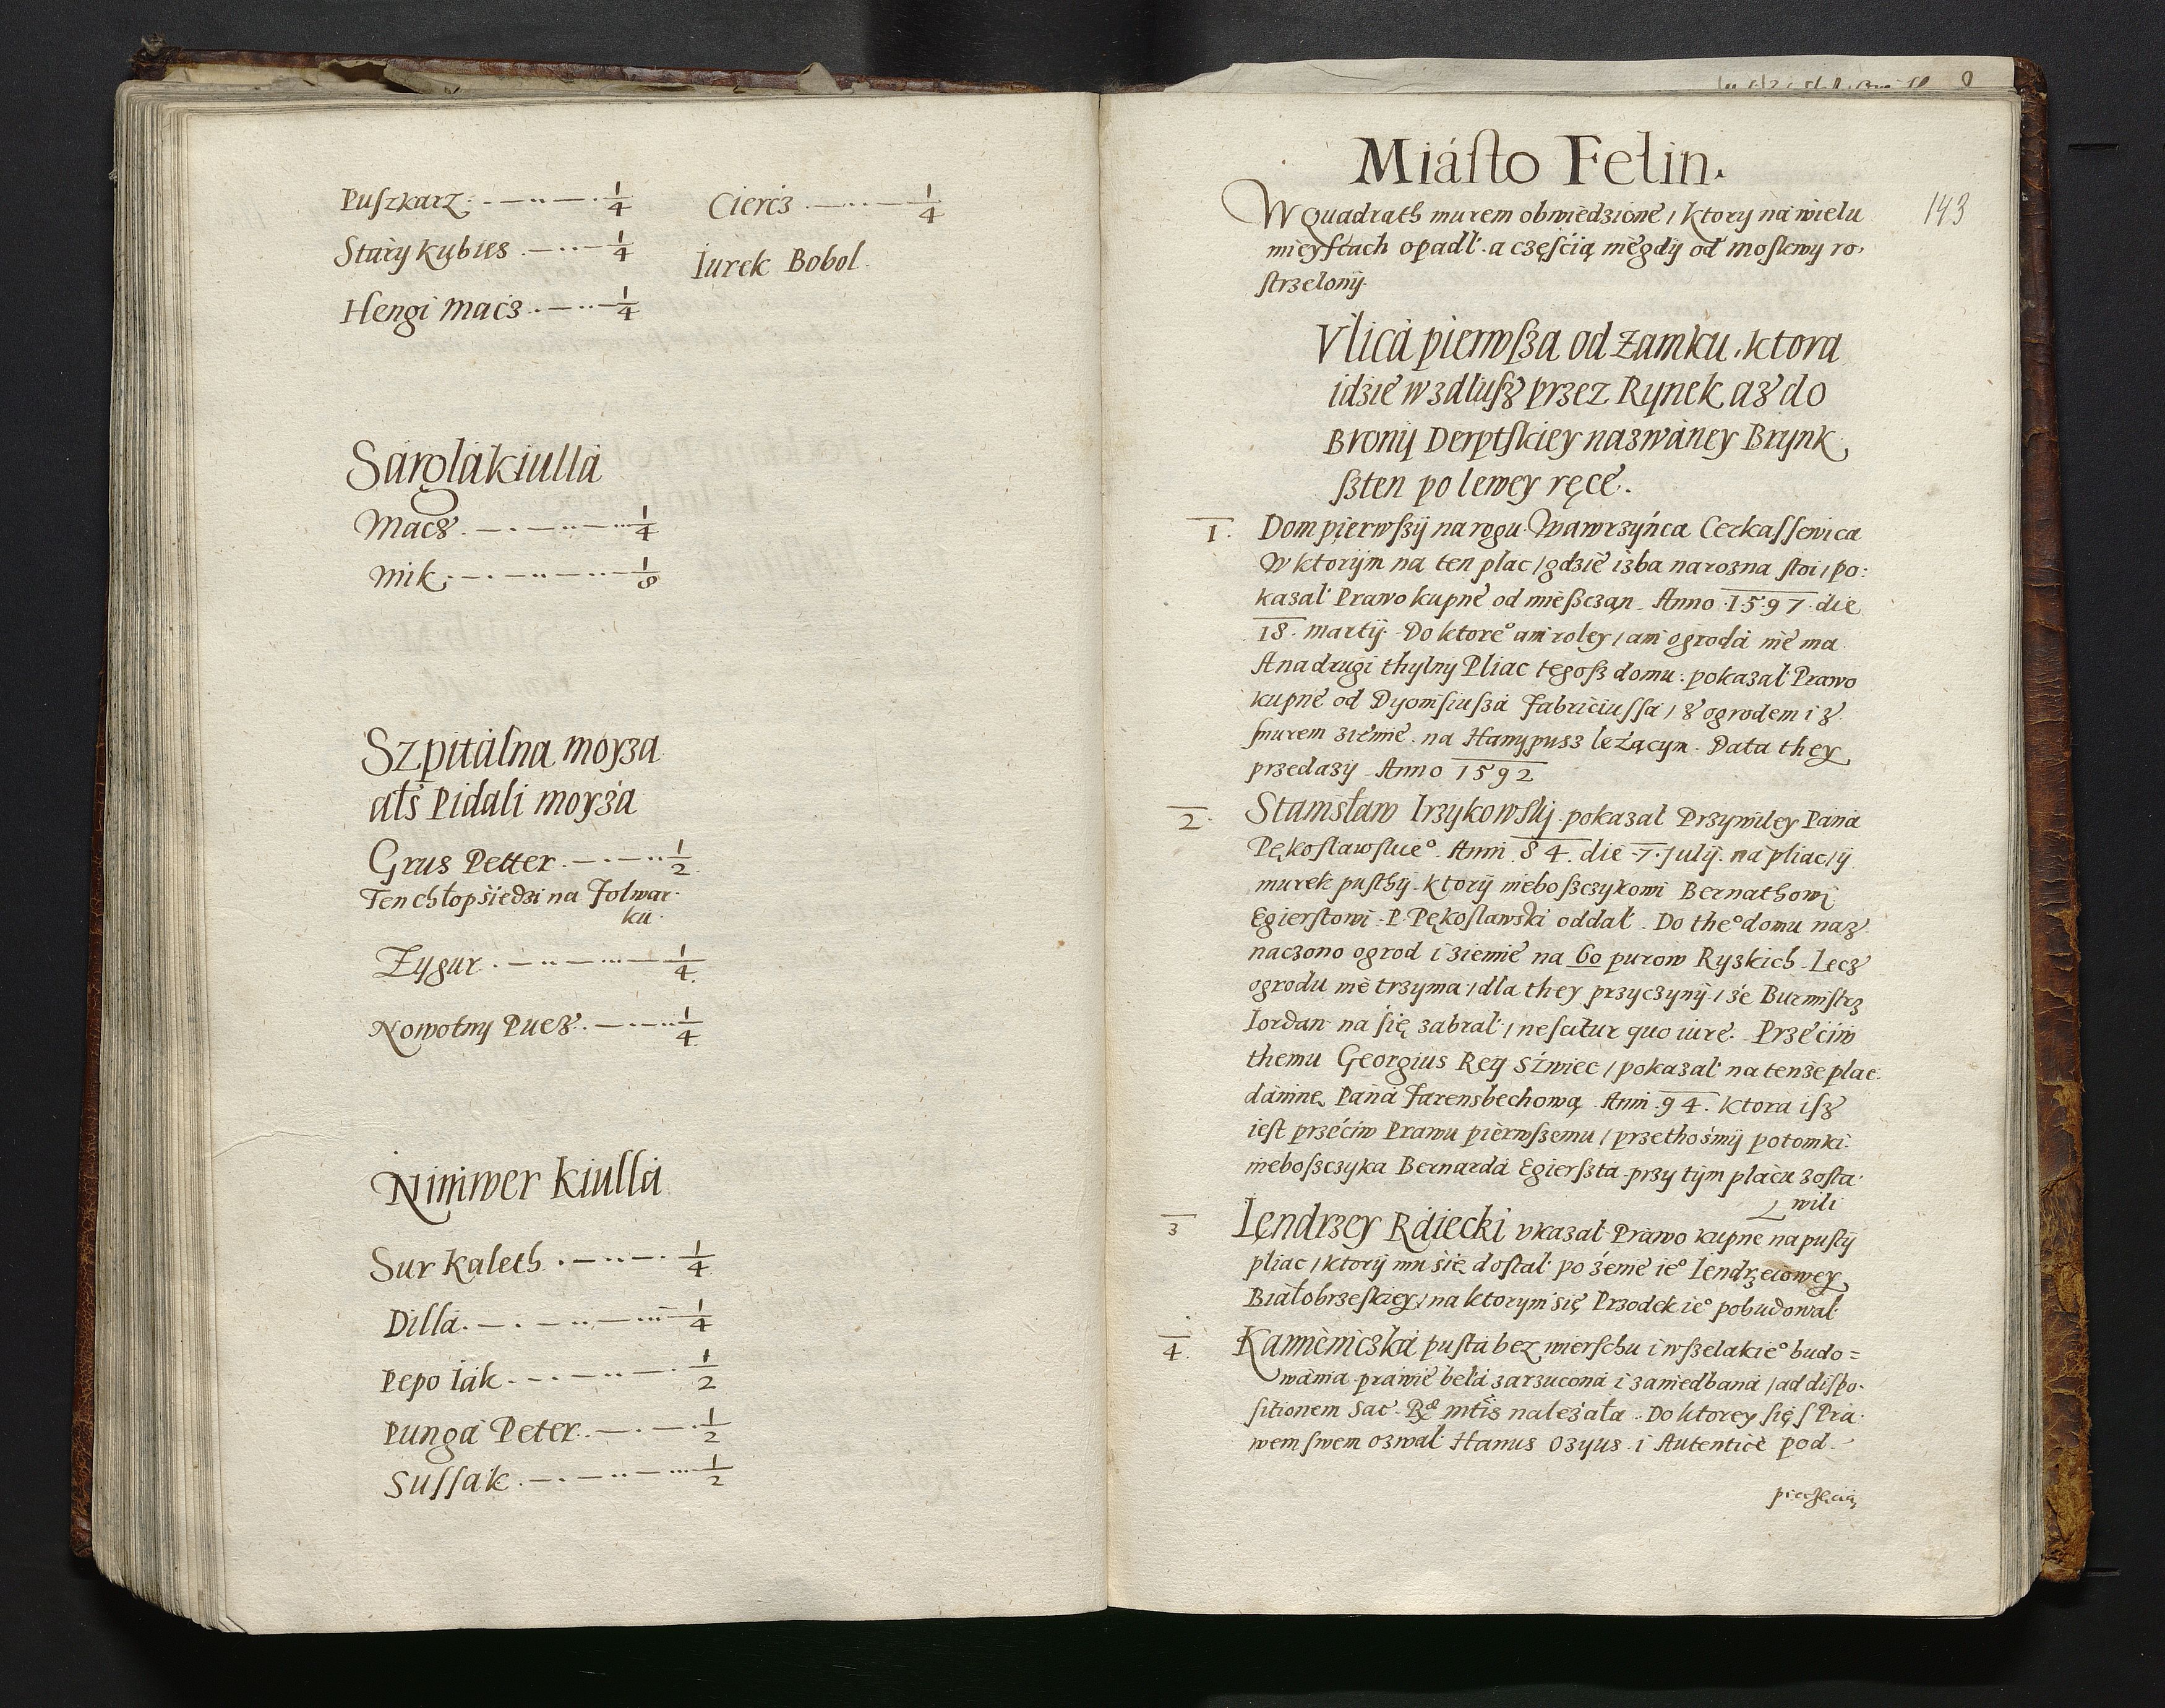 Puſzkarz ¼
Stáry kubus ¼
Hengi Mács ¼
Cierćz ¼
Iurek Bobol.
Sárglákiullá
Maćz ¼
Mik ⅛
Szpitálna moyza
als Pidali moyza
Grus Petter ½
Ten chłop siedzi na Folwar-
ku.
Zygur ¼
Nowotny Puez ¼
Nimwer kiullá
Sur Kaleth ¼
Dillá ¼
Pepo Iák ½
Pungá Peter ½
Suſſak ½
Miáſto Felin.
143
W quadrath murem obwiedzione / ktory ná wielu
mieyſcach opadł. a częſcią niegdy od moſkwy ro,
ſtrzelony.
Vlicá pierwſza od zamku, ktora
idzie wzdłuſz przez Rynek aż do
Brony Derptſkiey nazwáney Brynk
ſzten po lewey ręce.
1. Dom pierwſzy na rogu Wawrzyńca Cerkaſſewica
W ktorym na ten plac / gdzie izba narozna ſtoi / po:
kazał Prawo kupne od mieſzczan Anno 1597 die
18. martij. Do ktore° ani roley / ani ogrodá nie ma
A na drugi thylny Pliac tegoſz domu: pokazał Prawo
kupne od Dyonisiuſzá Fabriciuſſá / z ogrodem i z
ſnurem ziemie na Hanypusz leżącym. Data they
przedazy Anno 1592
2. Stanisław Irzykowſky pokazał Przywiley Páná
Pękoſławſkie°. Anni 84. die 7. Julij. na pliac / y
murek puſthy. ktory nieboſzczykowi Bernathowi
Egierſtowi P. Pękosławski oddał. Do the° domu naz
naczono ogrod i ziemie na 60 purow Ryzkich. Lecz
ogrodu nie trzyma / dla they przyczyny / że Burmiſtrz
Iordan na się zabrał / neſcitur quo iure. Przeciw
themu Georgius Rey Szwiec / pokazał na tenże plac
dánine Páná Farensbechową Anni 94. ktora iſz
ieſt przećiw Prawu pierwſzemu / przethośmy potomki
nieboſzczyka Bernardá Egierſztá przy tym placu zoſta
wili
3 Iendrzey Ráiecki vkazał Prawo kupne na puſty
pliac / ktory mu się doſtał po żenie ie° Iendrzeiowey
Białobrzeſkiey / na ktorym się Przodek ie° pobudował
4. Kamieniczká puſta bez wierſchu i wſzelakie° budo=
wánia práwie belá zarzuconá i zaniedbaná / ad diſpo.
ſitionem Sac. Ræ mtis należała. Do ktorey się ſ Pra
wem ſwem ozwał Hanus Ozyus i Autentice pod
pieczęcią